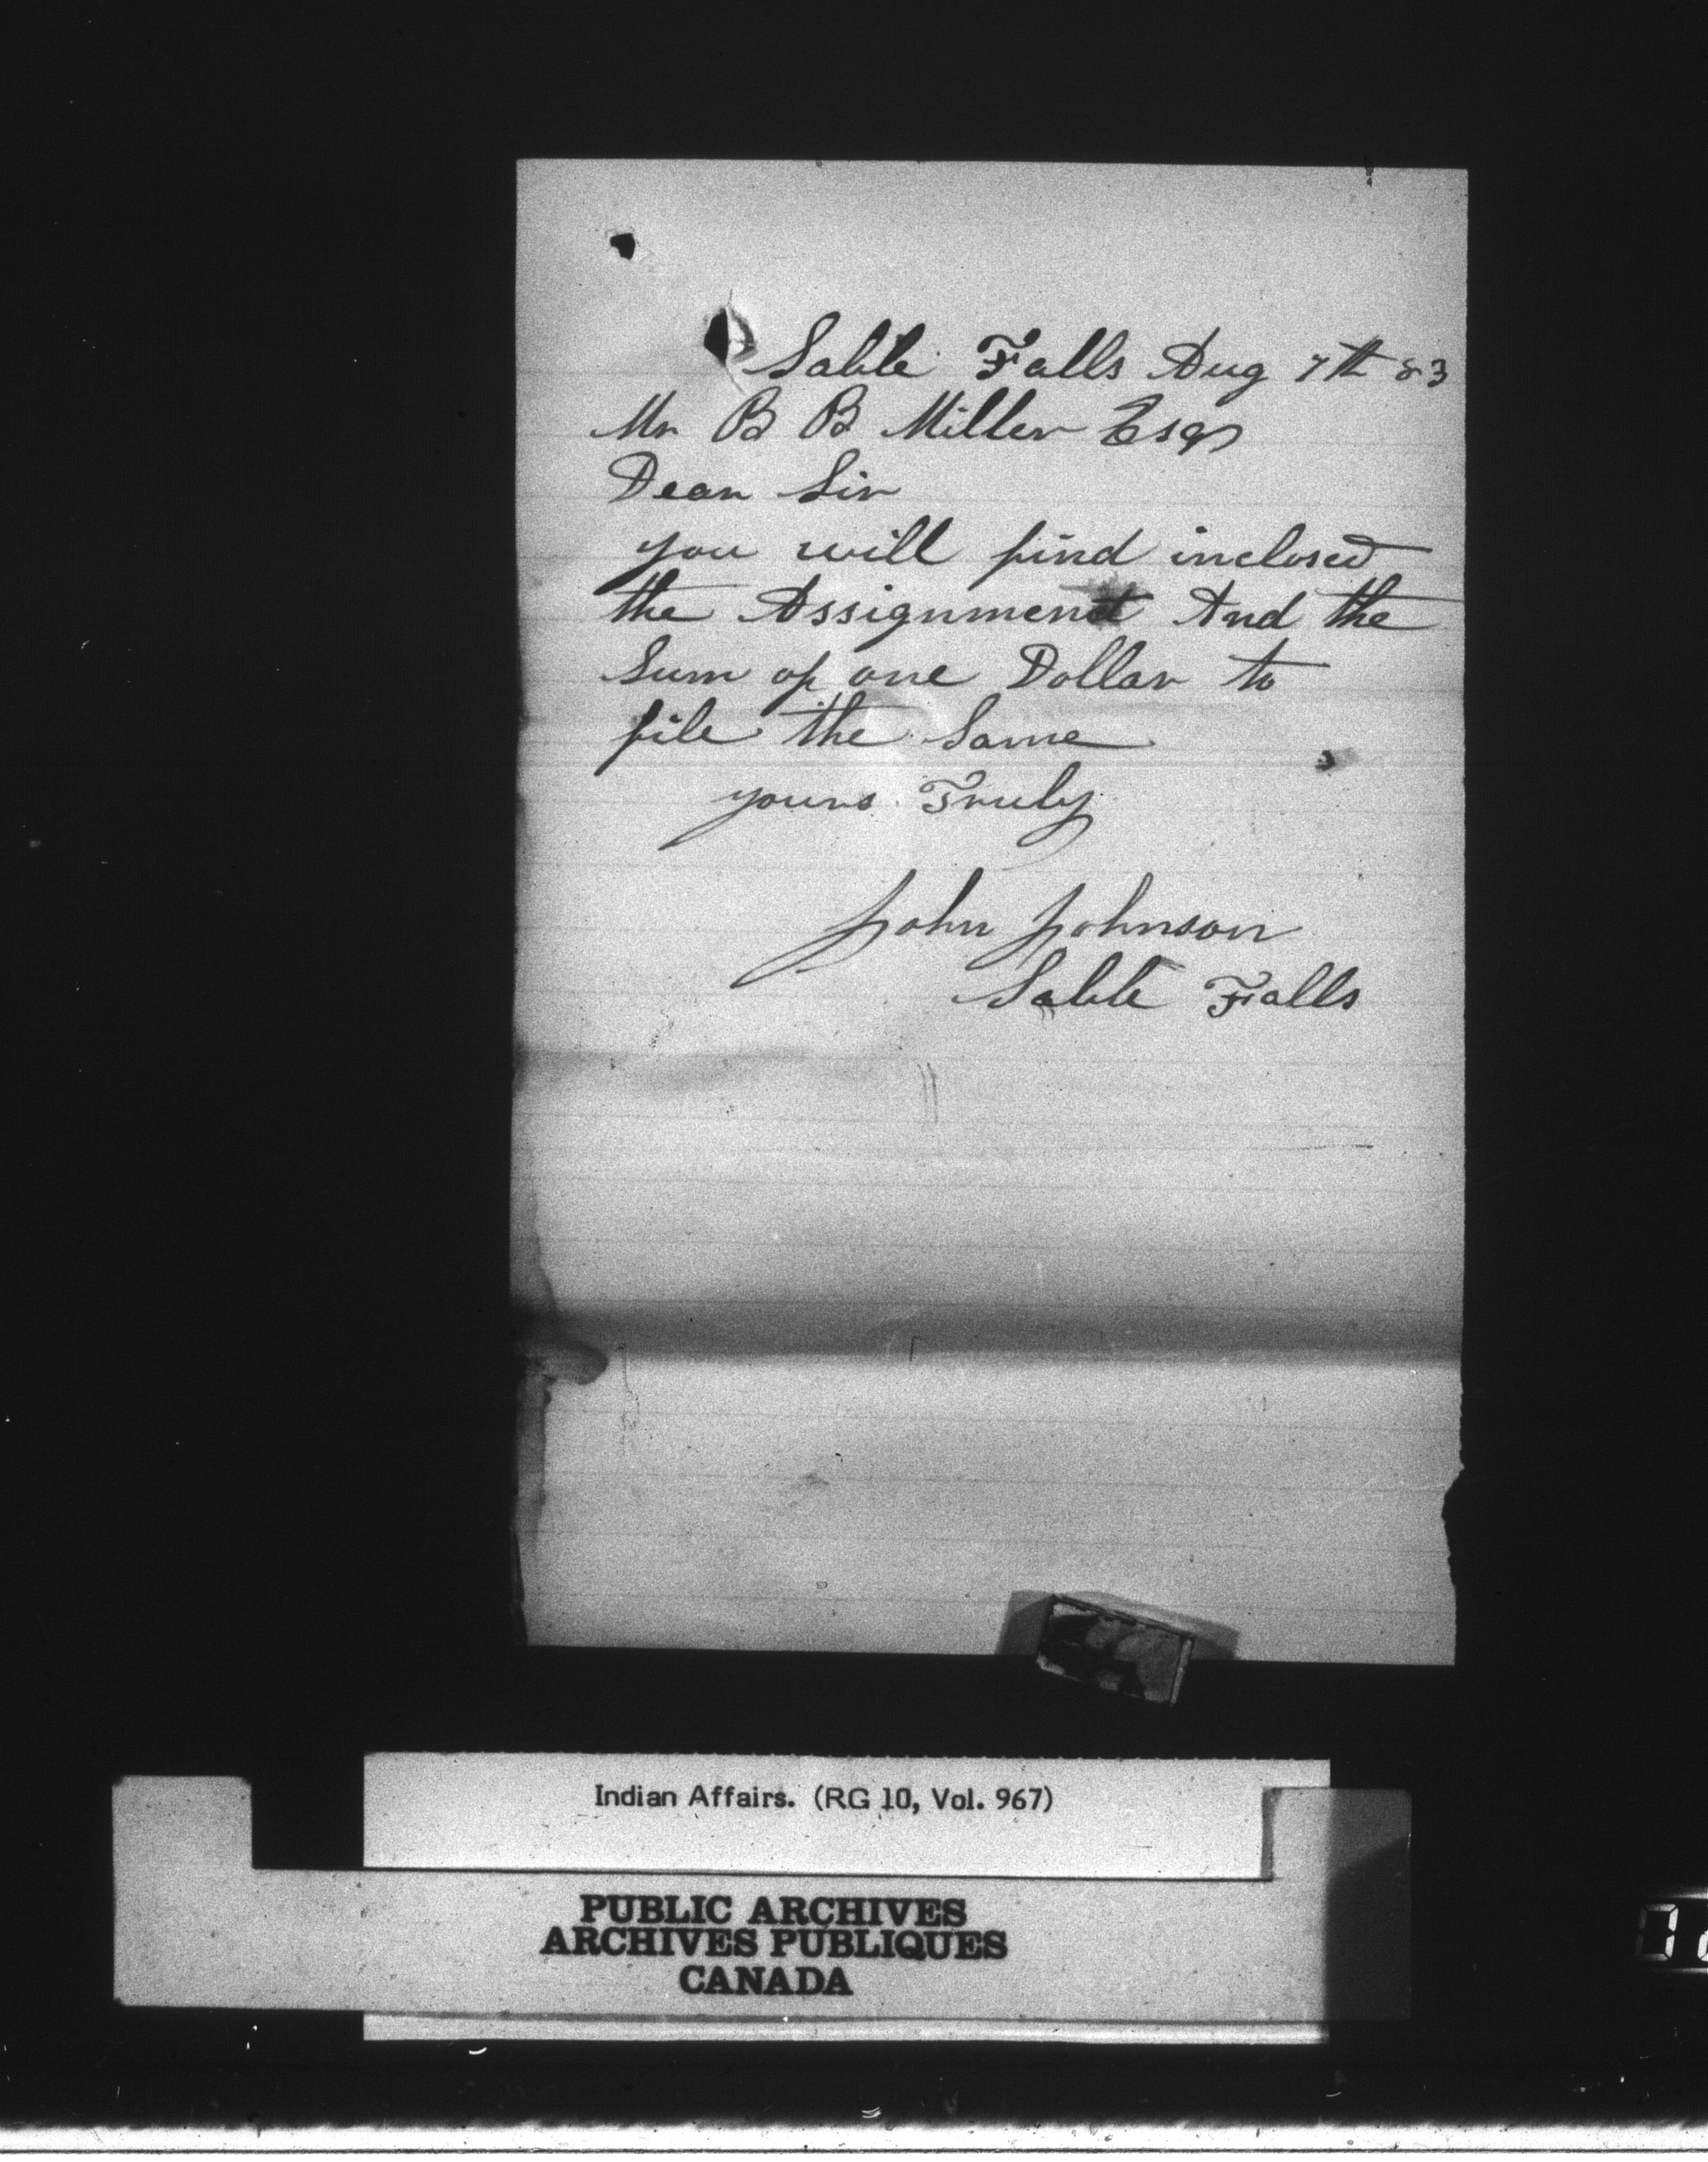 Sable Falls Aug 7th 83
Mr B B Miller Esqr
Dear Sir
you will find inclosed
the Assignment And the
Sum of one Dollar to
file the Same
yours Truly
John Johnson
Sable Falls
Indian Affairs. (RG 10, Vol. 967)
PUBLIC ARCHIVES
ARCHIVES PUBLIQUES
CANADA